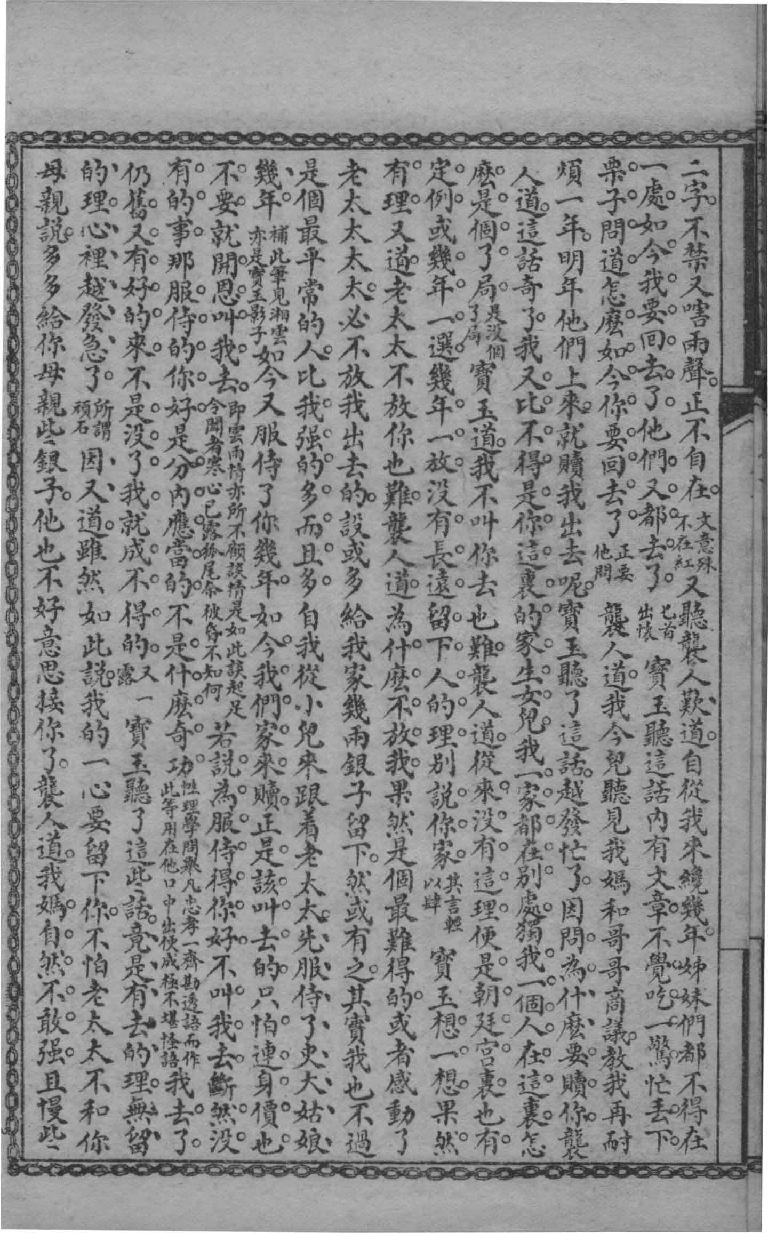 二字不禁又嗐兩聲正不自在文意殊不在紅又聽襲人歎道自從我來纔幾年姊妹們都不得在
一處如今我要回去了他們又都去了匕首出懐寶玉聽這話内有文章不覺吃一驚忙丢下
栗子問道怎麽如今你要回去了正要他問襲人道我今兒聽見我媽和哥哥商議教我再耐
煩一年明年他們上來就贖我出去呢寶玉聽了這話越發忙了因問為什麽要贖你襲
人道這話奇了我又比不得是你這裏的家生女兒我一家都在别處獨我一個人在這裏怎
麽是個了局是没個了局寶玉道我不叫你去也難襲人道從來没有這理便是朝廷宫裏也有
定例或幾年一選幾年一放没有長遠留下人的理别說你家其言輕以肆寶玉想一想果然
有理又道老太太不放你也難襲人道為什麽不放我果然是個最難得的或者感動了
老太太太太必不放我出去的設或多給我家幾兩銀子留下然或有之其實我也不過
是個最平常的人比我强的多而且多自我從小兒來跟着老太太先服侍了史大姑娘
幾年補此筆見湘雲亦是寶玉影子如今又服侍了你幾年如今我們家來贖正是該叫去的只怕連身價也
不要就開恩叫我去即雲雨情亦所不顧談情是如此談起足令聞者寒心已露狐尾奈彼昏不知何若說為服侍得你好不叫我去斷然没
有的事那服侍的你好是分内應當的不是什麽奇功性理學問舉凡忠孝一齊勘透語而作此等用在他口中出便成極不堪怪語我去了
仍舊又有好的來不是没了我就成不得的又一露寶玉聽了這些話竟是有去的理無留
的理心裡越發急了所謂頑石因又道雖然如此說我的一心要留下你不怕老太太不和你
母親說多多給你母親些銀子他也不好意思接你了襲人道我媽自然不敢强且慢些